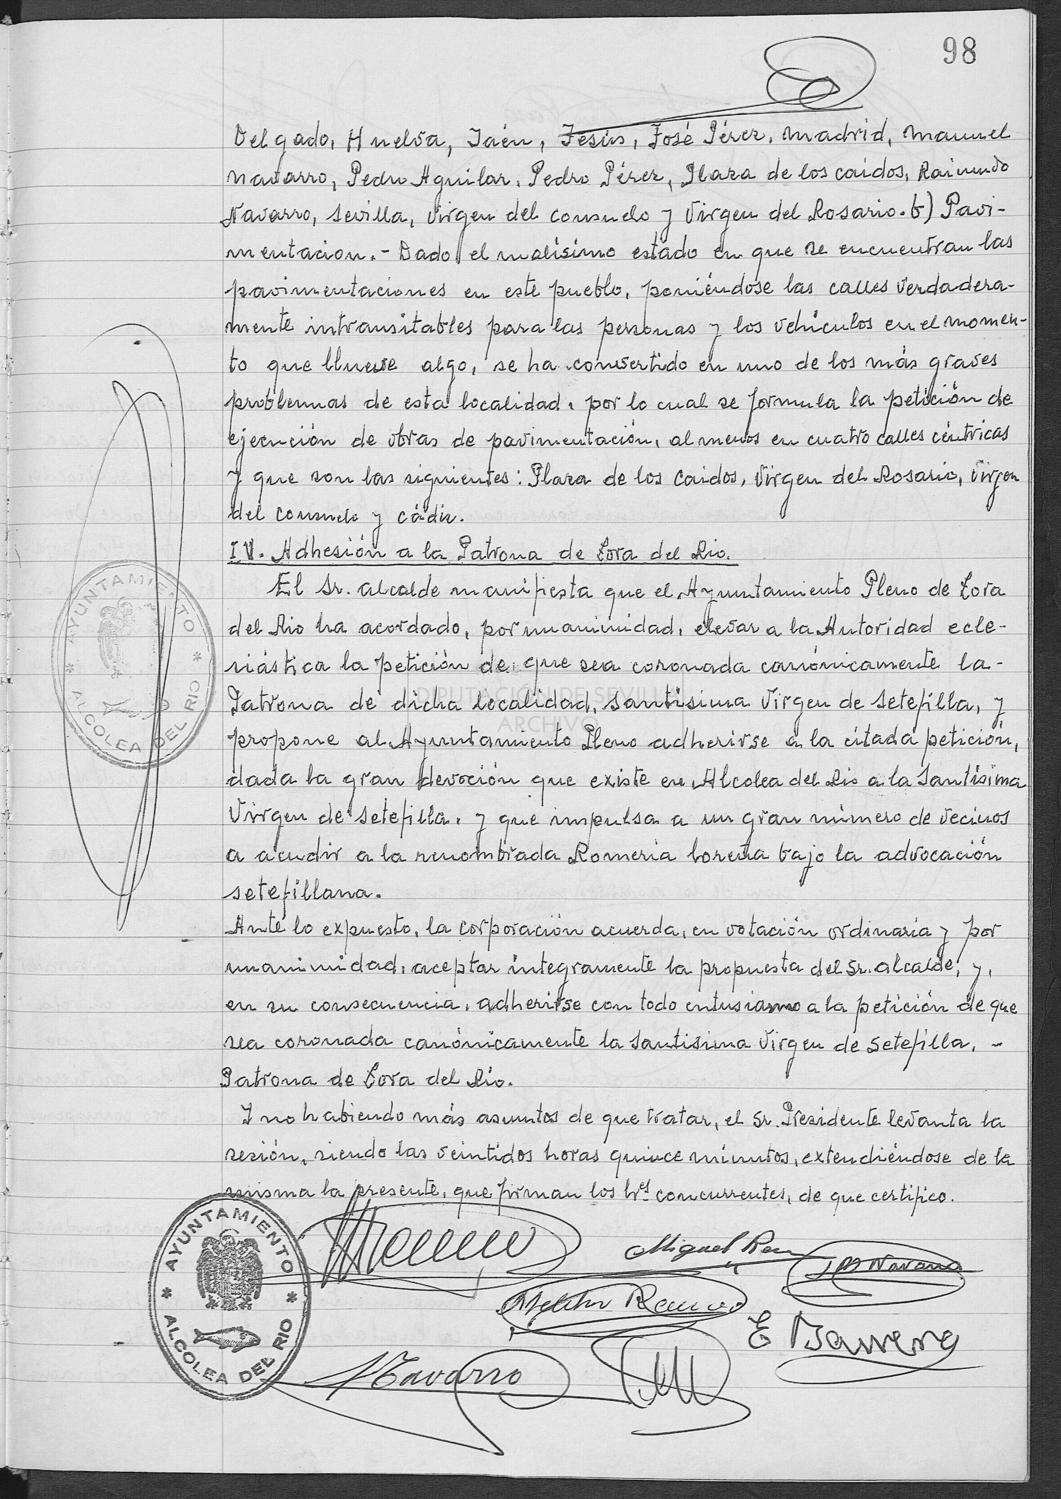 98
Delgado, Huelva, Jaén, Jesús, José Pérez, Madrid, Manuel
Navarro, Pedro Aguilar, Pedro Pérez, Plaza de los Caidos, Raimundo
Navarro, Sevilla, Virgen del Consuelo y Virgen del Rosario. b) Pavi-
mentacion.- Dado el malísimo estado en que se encuentran las
pavimentaciones en este pueblo, poniéndose las calles verdadera-
mente intransitables para las personas y los vehículos en el momen-
to que llueve algo, se ha convertido en uno de los más graves
problemas de esta localidad, por lo cual se formula la petición de
ejecución de obras de pavimentación, al menos en cuatro calles céntricas
y que son las siguientes: Plaza de los Caidos, Virgen del Rosario, Virgen
del Consuelo y Cádiz.
IV. Adhesión a la Patrona de Lora del Rio.
El Sr. Alcalde manifiesta que el Ayuntamiento Pleno de Lora
del Rio ha acordado, por unanimidad, elevar a la Autoridad ecle-
siástica la petición de que sea coronada canónicamente la-
Patrona de dicha localidad, Santísima Virgen de Setefilla, y
propone al Ayuntamiento Pleno adherirse a la citada petición,
dada la gran devoción que existe en Alcolea del Rio a la Santísima
Virgen de Setefilla, y que impulsa a un gran número de vecinos
a acudir a la renombrada Romeria loreña bajo la advocación
setefillana.
Ante lo expuesto, la Corporación acuerda, en votación ordinaria y por
unanimidad, aceptar íntegramente la propuesta del Sr. Alcalde, y,
en su consecuencia, adherirse con todo entusiasmo a la petición de que
sea coronada canónicamente la Santísima Virgen de Setefilla, -
Patrona de Lora del Rio.
Y no habiendo más asuntos de que tratar, el Sr. Presidente levanta la
sesión, siendo las veintidos horas quince minutos, extendiéndose de la
misma la presente, que firman los Sres. concurrentes, de que certifico.
AYUNTAMIENTO
* ALCOLEA DEL RIO *
DIPUTACIÓN DE SEVILLA
ARCHIVO
AYUNTAMIENTO
* ALCOLEA DEL RIO *
Miguel
Navarro
E Barrera
Navarro